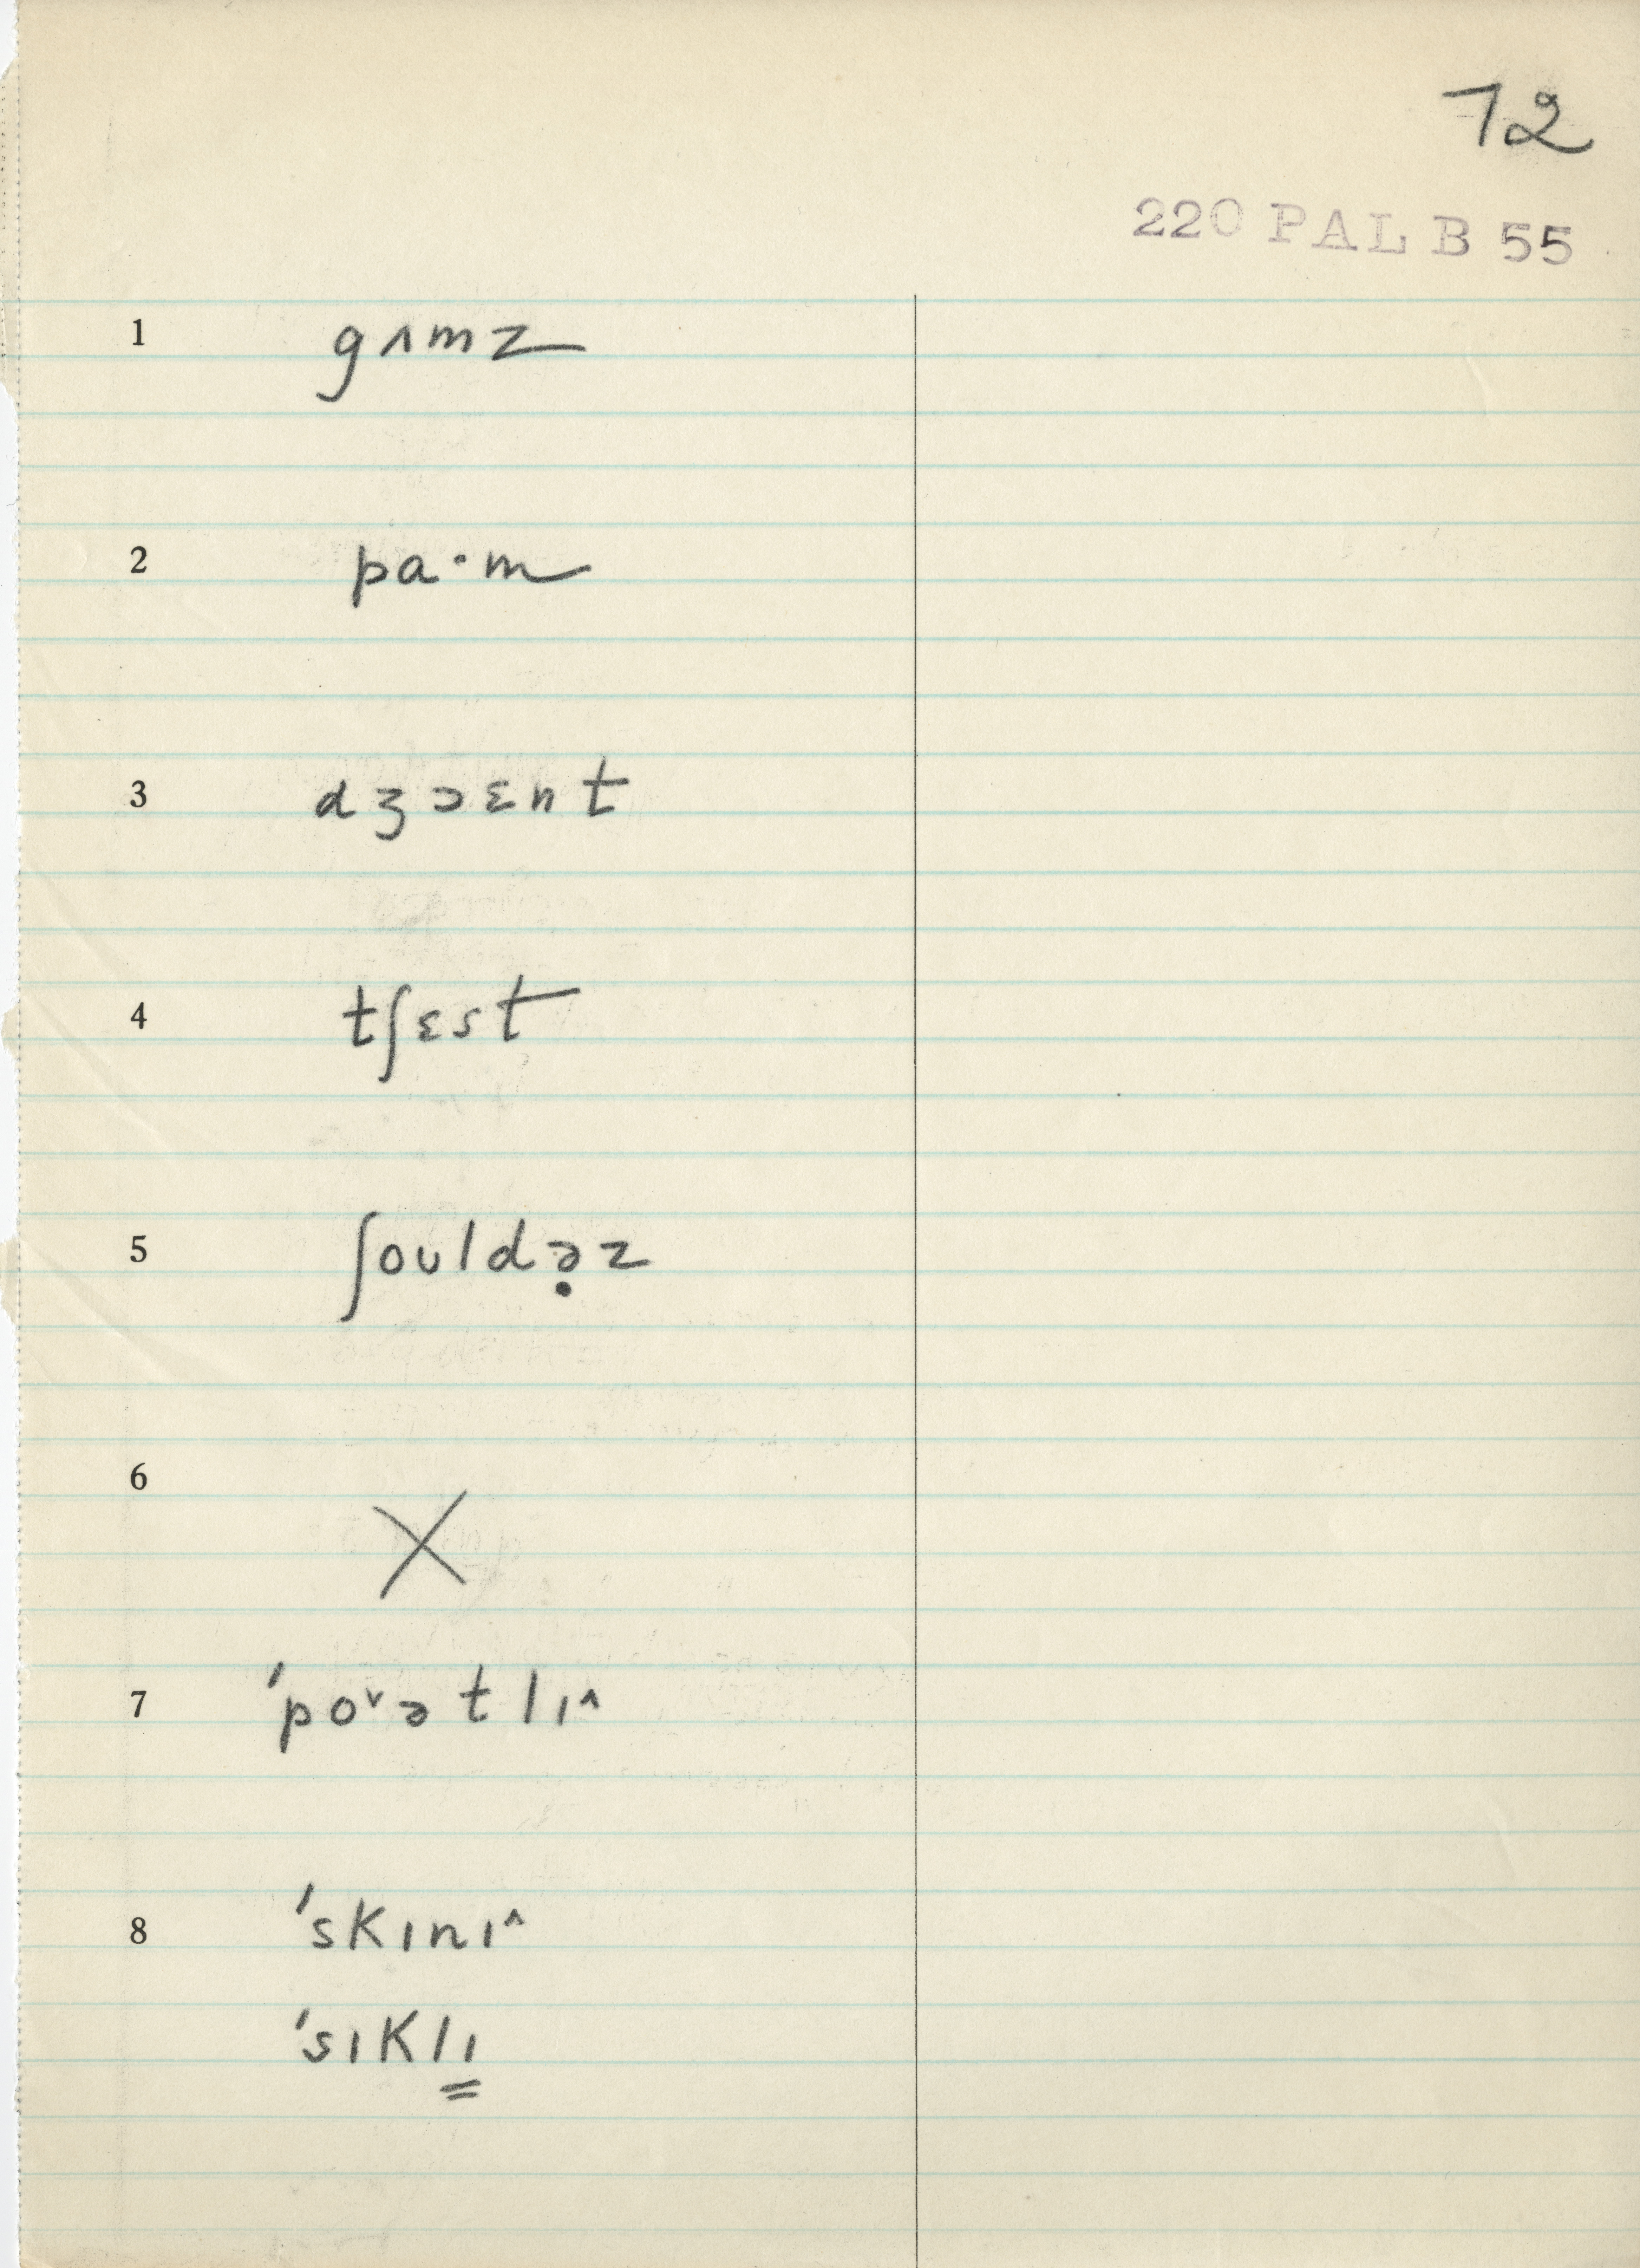 72
220 PAL B 55
1 gʌmz
2 pa·m
3 dʒɔɛnt
4 tʃɛst
5 ʃoʊldə̣z
6 X
7 'po˅ətlɪ˄
8 'skɪnɪ˄
'sɪklɪ